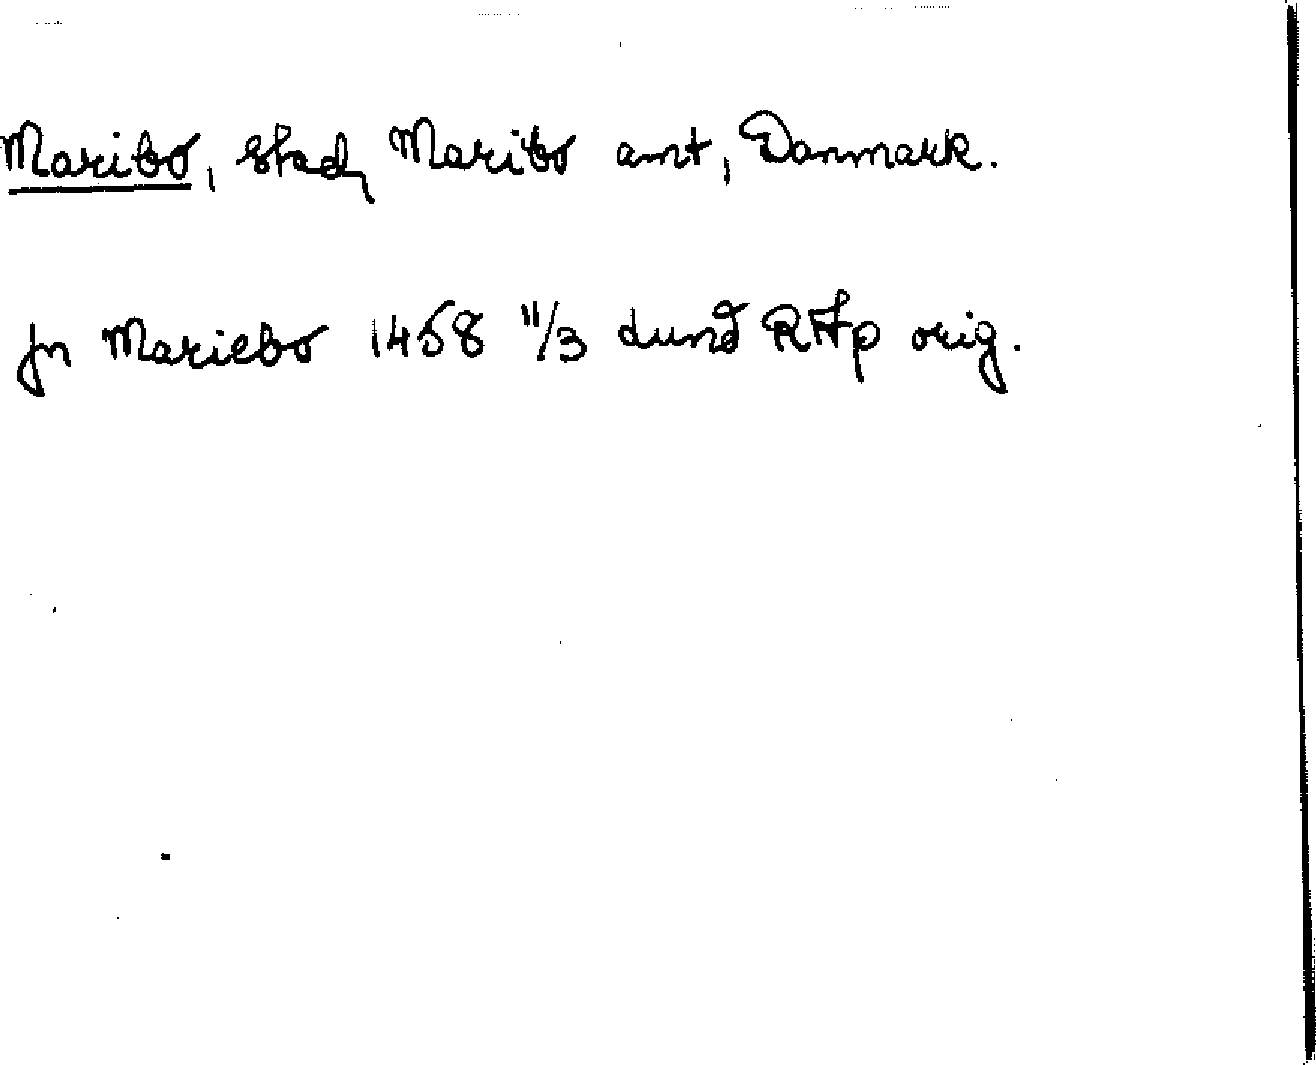 Maribo, stad, Maribo amt, Danmark.
Jn Mariebo 1458 11/3 Lund RAp orig.